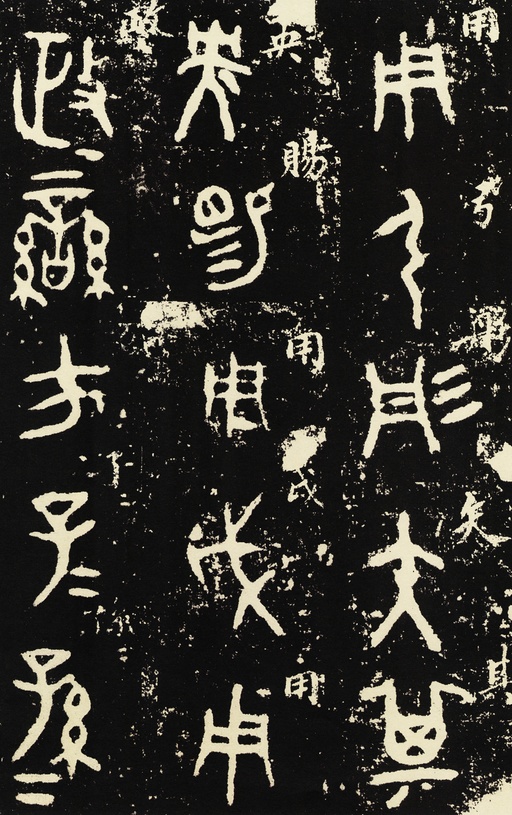 用弓彤矢其
用弓彤矢其
央賜用戉用
央賜用戉用
政
政䜌方子=孫=